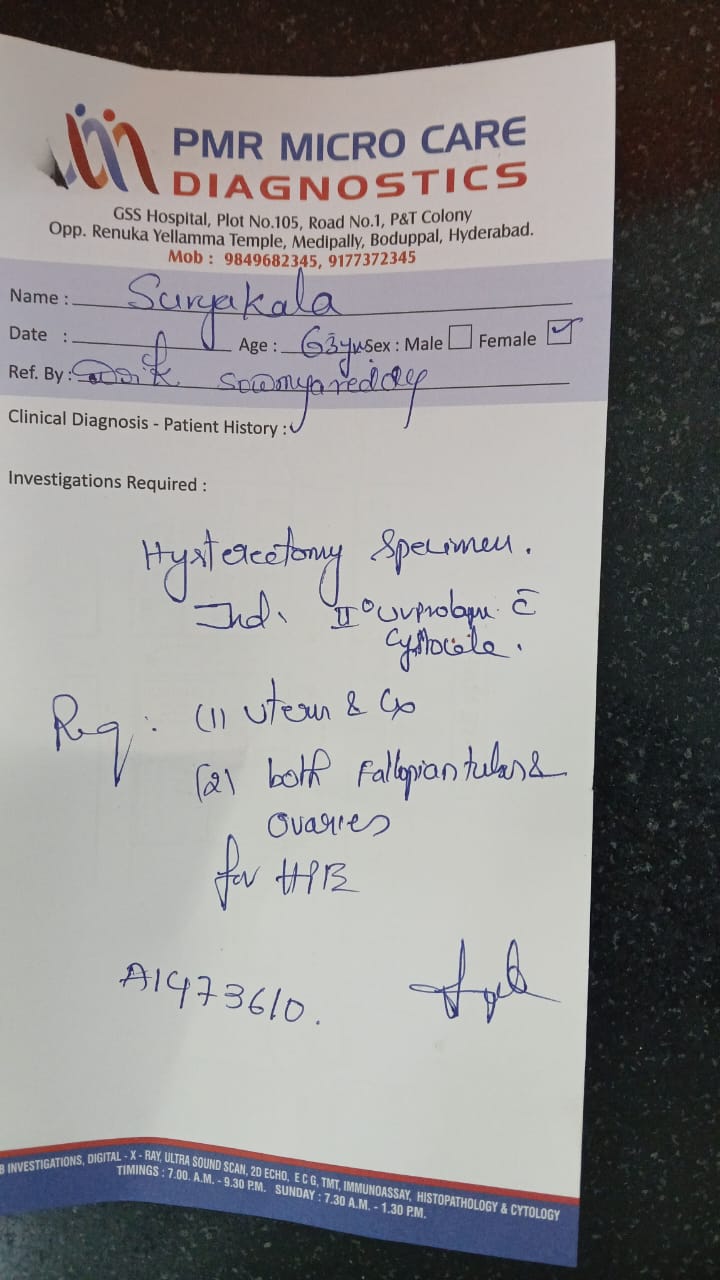 PMR MICRO CARE
DIAGNOSTICS
GSS Hospital, Plot No.105, Road No.1, P&T Colony
Opp. Renuka Yellamma Temple, Medipally, Boduppal, Hyderabad.
Mob : 9849682345, 9177372345
Name : Suryakala
Date : Age : 63yrs Sex : Male Female
Ref. By : Sowmya reddy
Clinical Diagnosis - Patient History :
Investigations Required :
Hysterectomy Specimen.
Ind. II° uvprolapse c̄
Cystocele.
Req : (1) Uterus & Cx
(2) both Fallopian tubes &
Ovaries
for HPE
A1473610.
B INVESTIGATIONS, DIGITAL - X - RAY, ULTRA SOUND SCAN, 2D ECHO, E C G, TMT, IMMUNOASSAY, HISTOPATHOLOGY & CYTOLOGY
TIMINGS : 7.00. A.M. - 9.30 P.M. SUNDAY : 7.30 A.M. - 1.30 P.M.